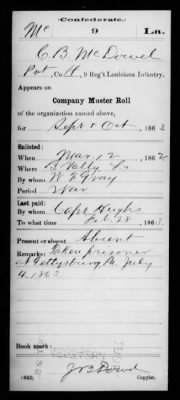 Confederate.
Mc 9 La.
C. B. McDowel
Pvt, Co. , 9 Reg't Louisiana Infantry.
Appears on
Company Muster Roll
of the organization named above,
for Sept & Oct , 1863
Enlisted:
When Mar 12 , 1862
Where
By whom W. F. Gray
Period War
Last paid:
By whom Capt
To what time Feb 28 , 1863.
Present or absent Absent
Remarks: Taken prisoner
at Gettysburg Pa. July
4, 1863
Book mark:
(642)
Copyist.